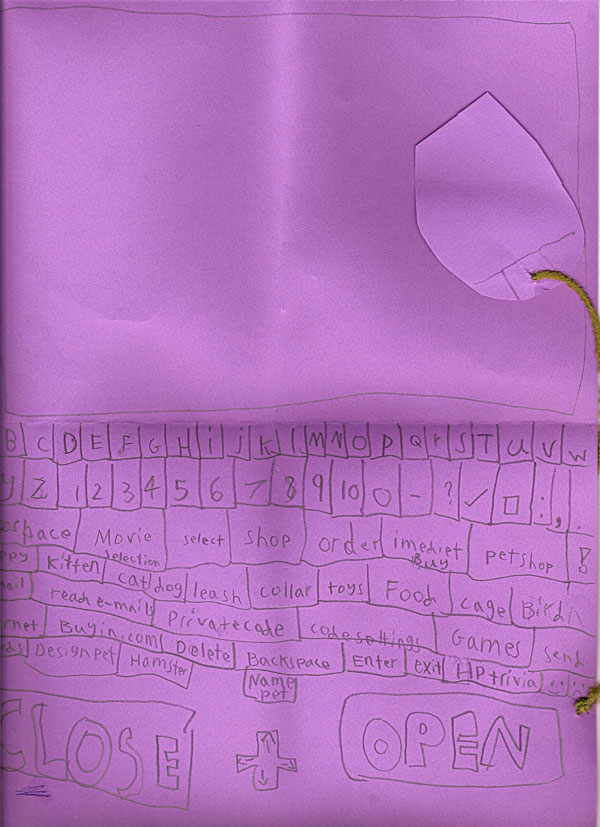 B C D E F G H i j K l M N O P Q r S T U V W
y Z 1 2 3 4 5 6 7 8 9 10 0 - ? ✓ □ : , .
space Movie selection select shop order imediet Buy petshop !
ppy Kitten cat/dog leash collar toys Food cage Bird
mail read e-mails Private code code settings Games send
rnet Buyin.com Delete Backspace Enter exit HP trivia
rds Design pet Hamster Name pet
CLOSE OPEN